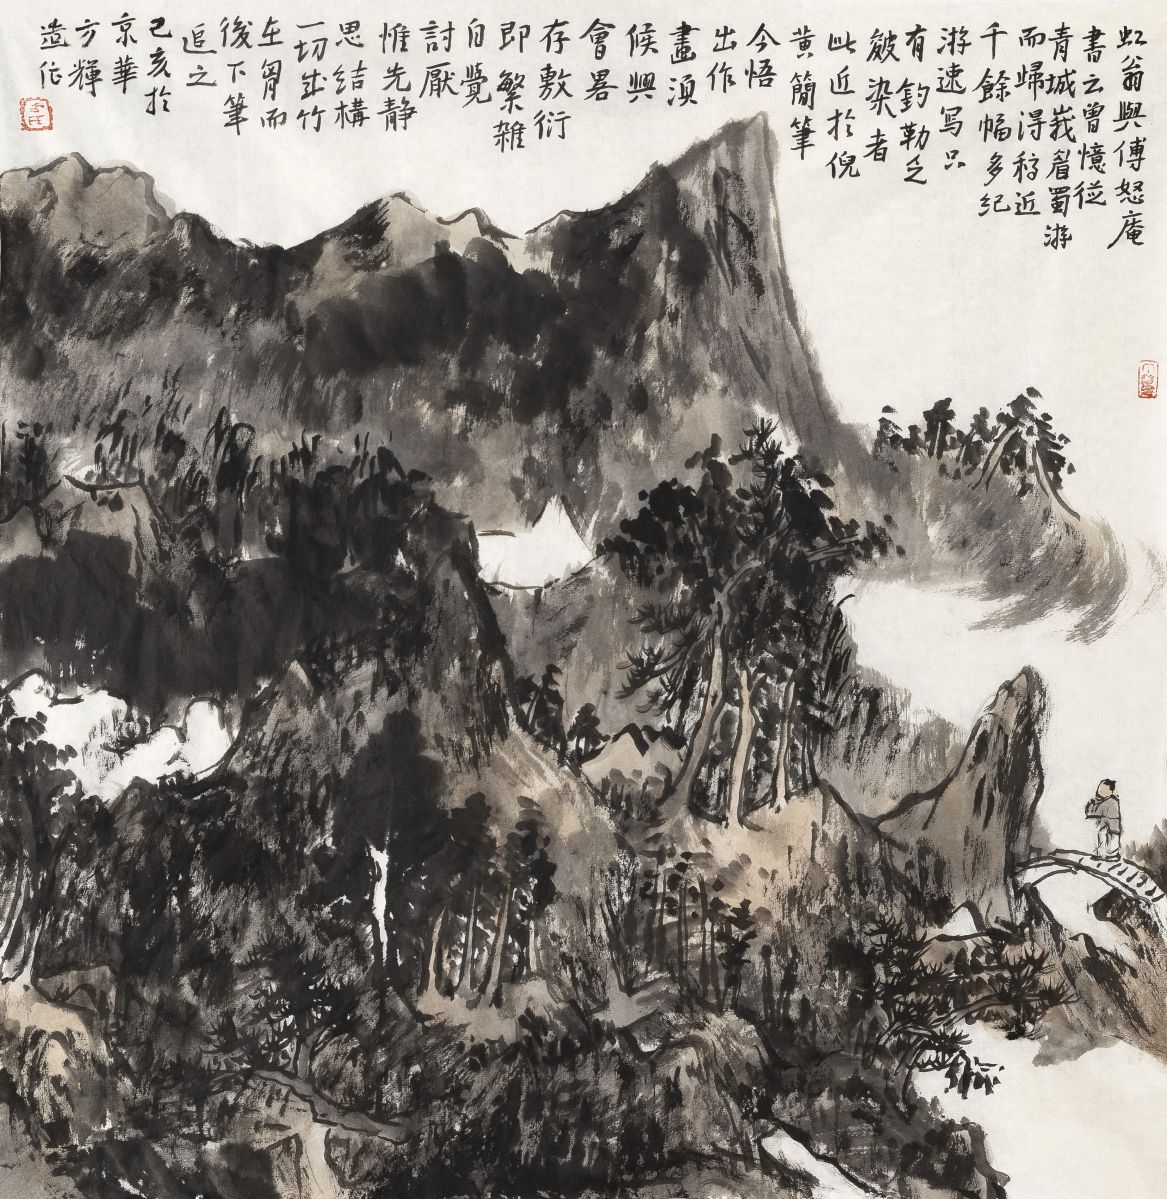 虹翁與傅怒庵
書云曾憶從
青城峩眉蜀游
而歸得稿近
千餘幅多紀
游速写只
有鈎勒乏
皴染者
此近於倪
黄簡筆
今悟
出作
畫須
候興
會畧
存敷衍
即繁雜
自覺
討厭
惟先静
思結構
一切成竹
在胷而
後下筆
追之
己亥於
京華
方輝
造作